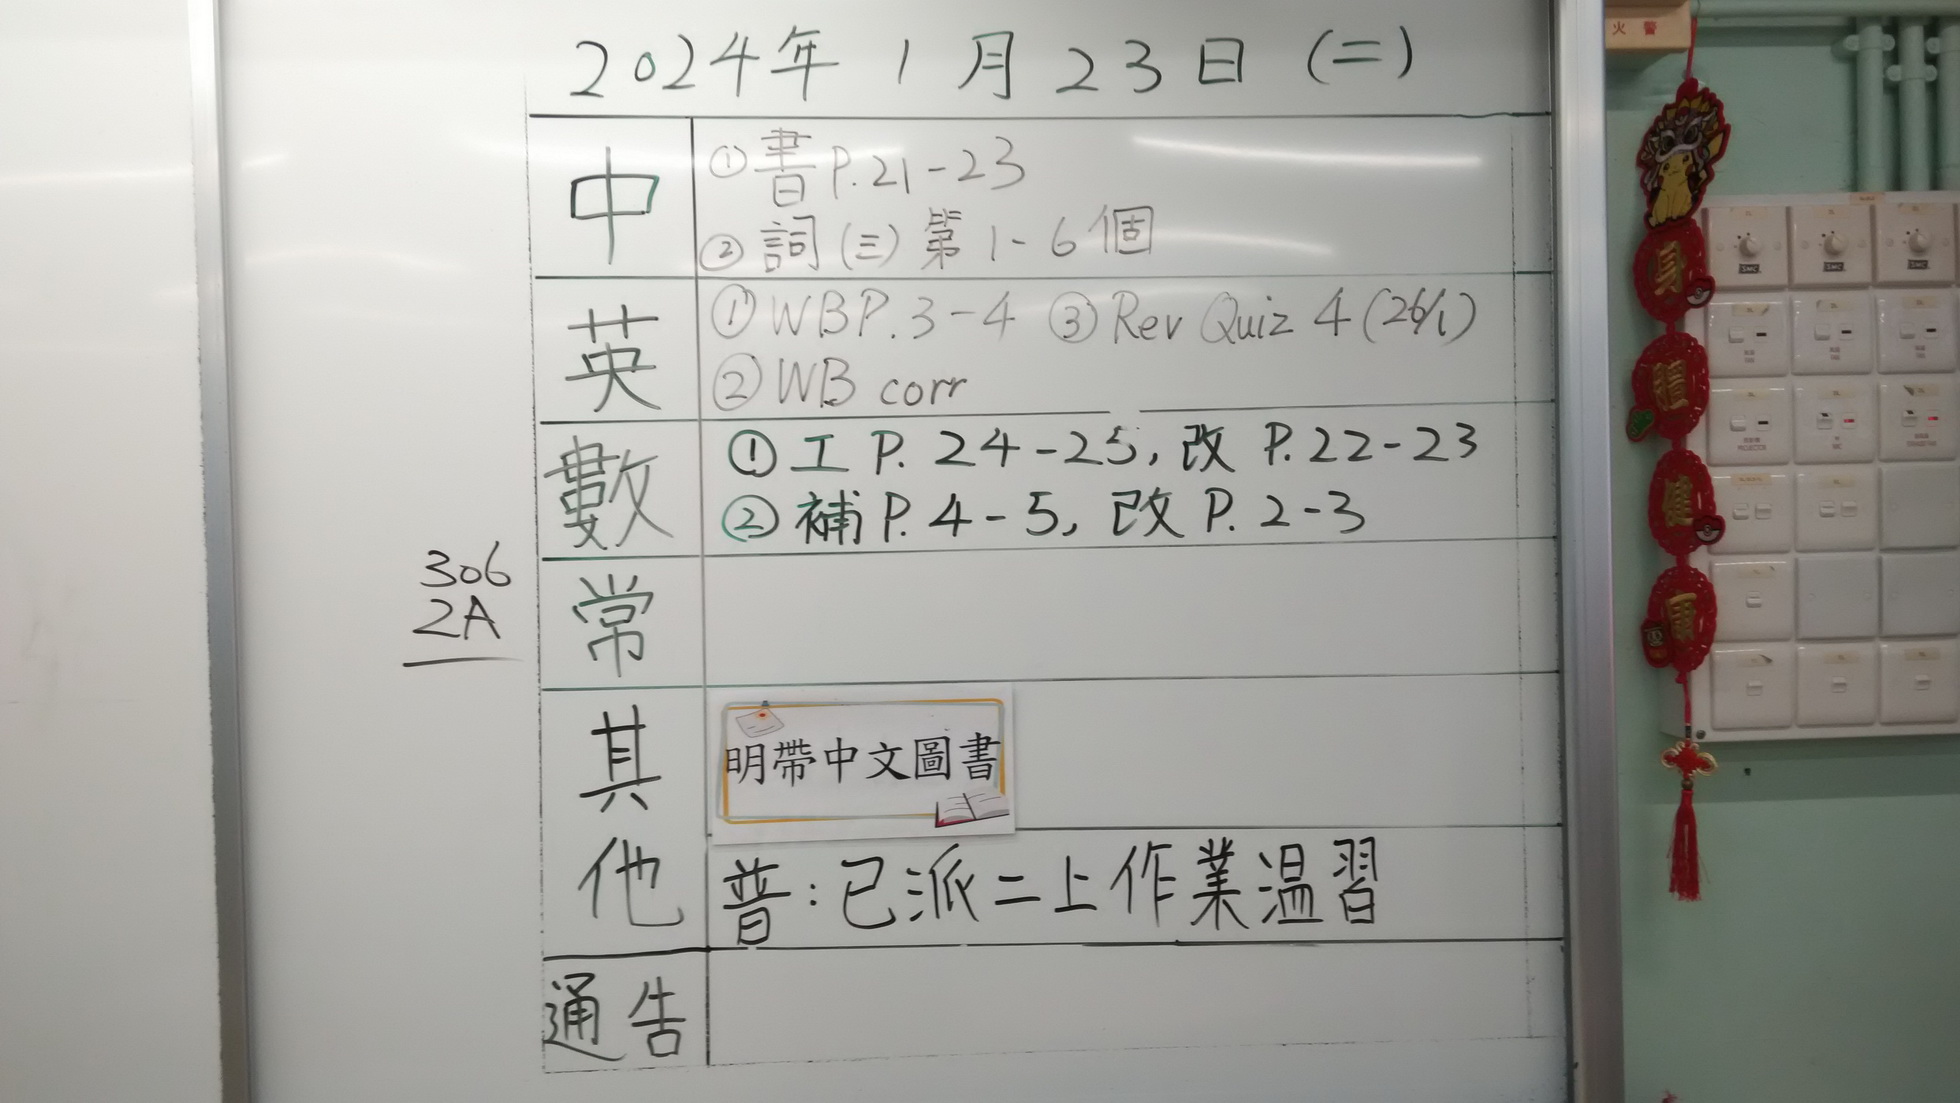 2024年1月23日(二)
中
①書P.21-23
②詞(三)第1-6個
英
①WBP.3-4 ③Rev Quiz 4(26/1)
②WB corr
數
①工P.24-25,改P.22-23
②補P.4-5,改P.2-3
306
2A
常
其他
明帶中文圖書
普:已派二上作業温習
通告
火警
身體健康